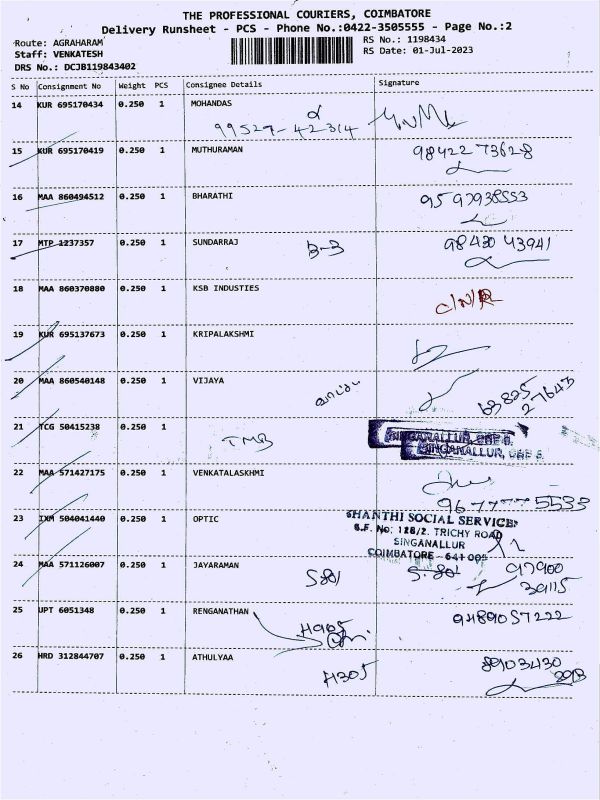 THE PROFESSIONAL COURIERS, COIMBATORE
Delivery Runsheet - PCS - Phone No.:0422-3505555 - Page No.:2
Route: AGRAHARAM
RS No.: 1198434
Staff: VENKATESH
RS Date: 01-Jul-2023
DRS No.: DCJB119843402
S No Consignment No Weight PCS Consignee Details Signature
14 KUR 695170434 0.250 1 MOHANDAS
99527-42314
15 KUR 695170419 0.250 1 MUTHURAMAN 98422 73628
16 MAA 860494512 0.250 1 BHARATHI 9597938553
17 MTP 1237357 0.250 1 SUNDARRAJ B-3 98430 43941
18 MAA 860370880 0.250 1 KSB INDUSTIES C/N/R
19 KUR 695137673 0.250 1 KRIPALAKSHMI
20 MAA 860540148 0.250 1 VIJAYA 63825
27643
21 TCG 50415238 0.250 1 TMB SINGANALLUR, CBE 5.
SINGANALLUR, CBE 5.
22 MAA 571427175 0.250 1 VENKATALASKHMI
96777 75533
23 IXM 504041440 0.250 1 OPTIC SHANTHI SOCIAL SERVICE
S.F. No: 128/2. TRICHY ROAD
SINGANALLUR
COIMBATORE - 641 005
24 MAA 571126007 0.250 1 JAYARAMAN S801 S-801 97900
39115
25 UPT 6051348 0.250 1 RENGANATHAN H905 94890 57222
26 HRD 312844707 0.250 1 ATHULYAA H305 8903430
2913